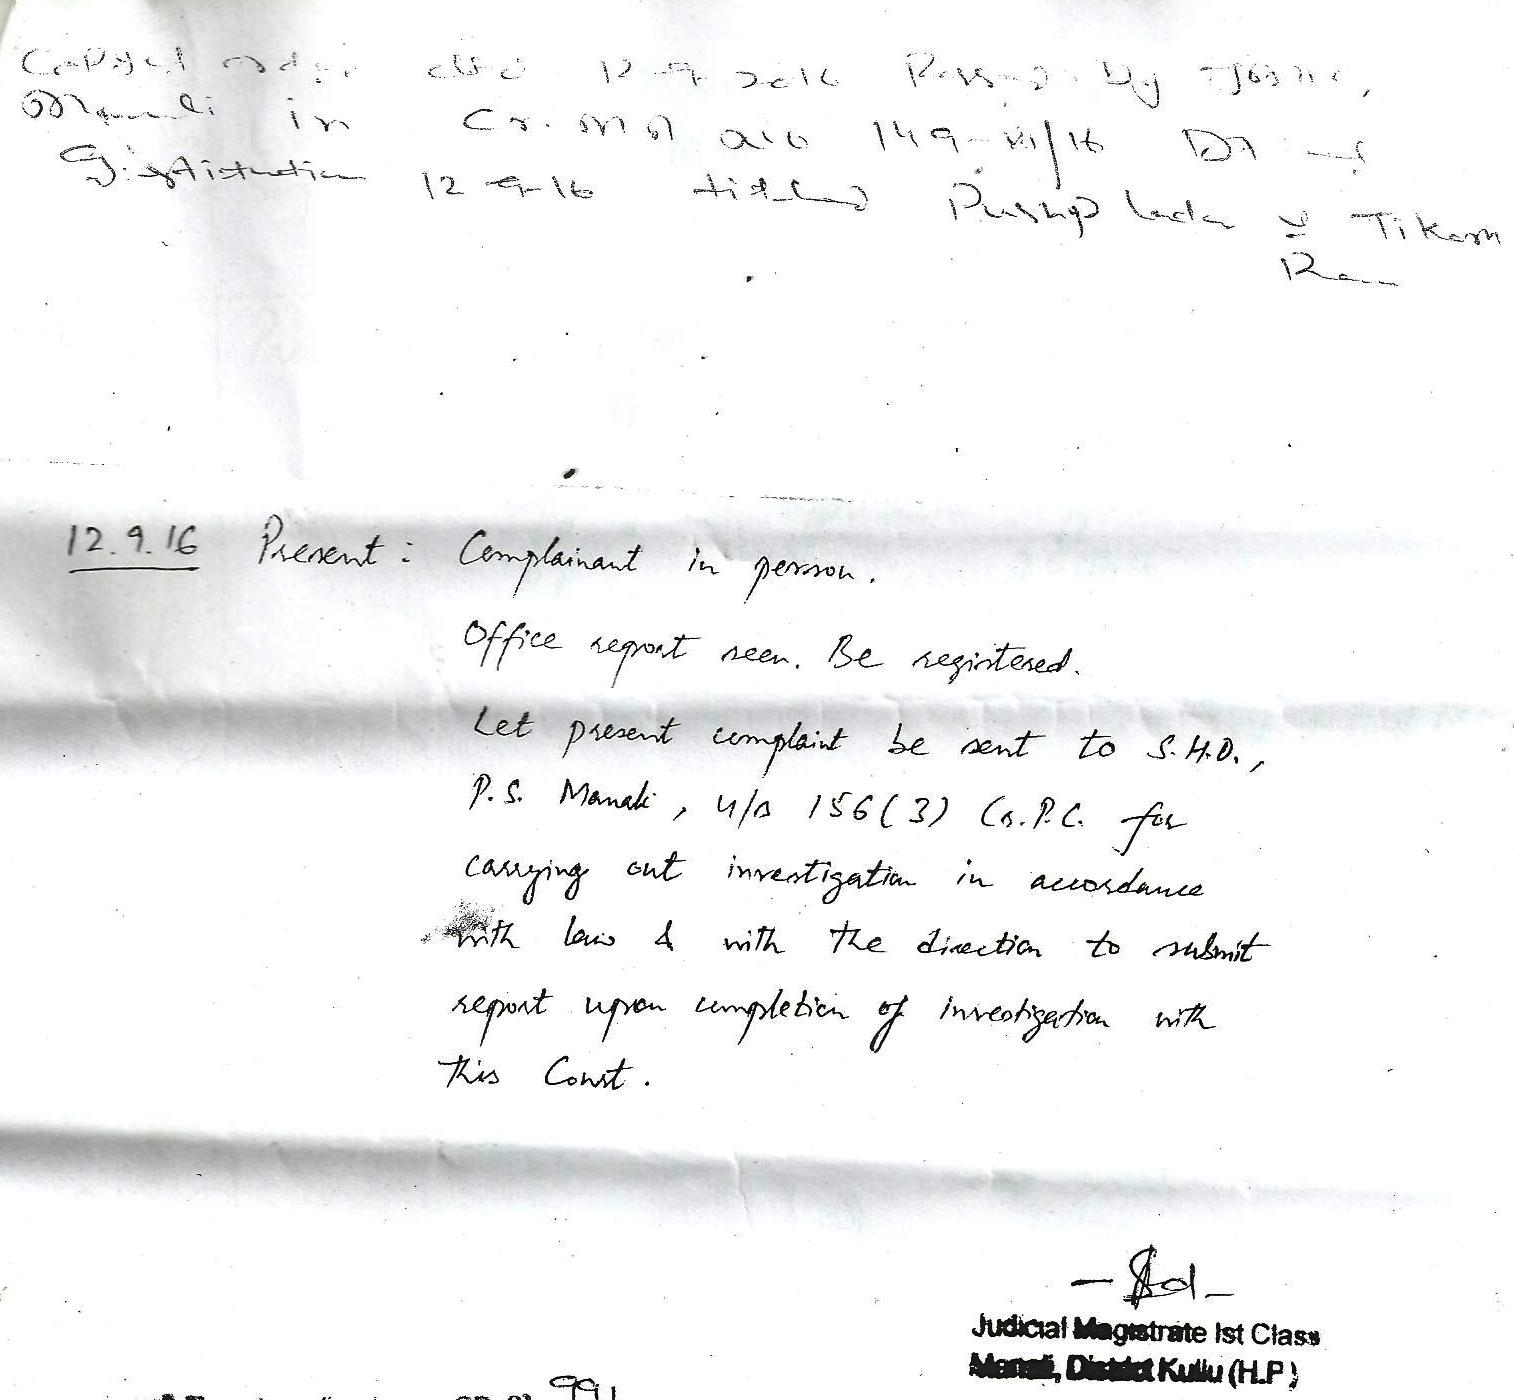 order dtd 12-9-2016 Passed by JMIC,
Manali in Cr. MA No 149-XI/16 Dt of
Institution 12-9-16 titled Pushp Lada v Tikam
Ram
12.9.16 Present: Complainant in person.
Office report seen. Be registered.
Let present complaint be sent to S.H.O.,
P.S. Manali, u/s 156(3) Cr.P.C. for
carrying out investigation in accordance
with law & with the direction to submit
report upon completion of investigation with
this Court.
-Sd-
Judicial Magistrate Ist Class
Manali, District Kullu (H.P)